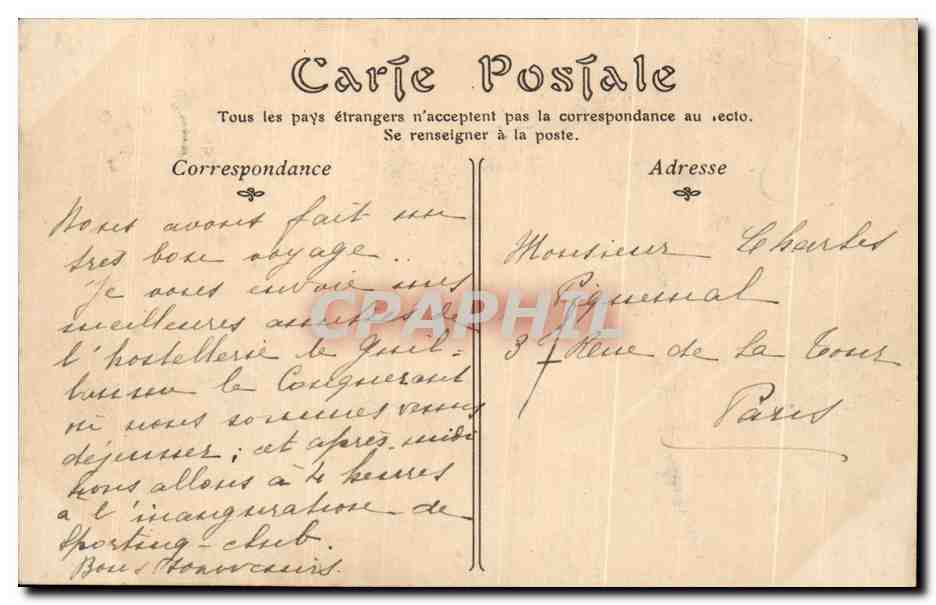 Carte Postale
Tous les pays étrangers n'acceptent pas la correspondance au recto.
Se renseigner à la poste.
Correspondance
Nous avons fait un
très bon voyage..
Je vous envoie mes
meilleures amitiés de
l'hostellerie le Guil-
laume le Conquérant
où nous sommes venus
déjeuner; et après-midi
nous allons à 4 heures
a l'inauguration de
Sporting-club.
Bons souvenirs.
Adresse
Monsieur Charles
Piquemal
37 Rue de la Tour
Paris
CPAPHIL